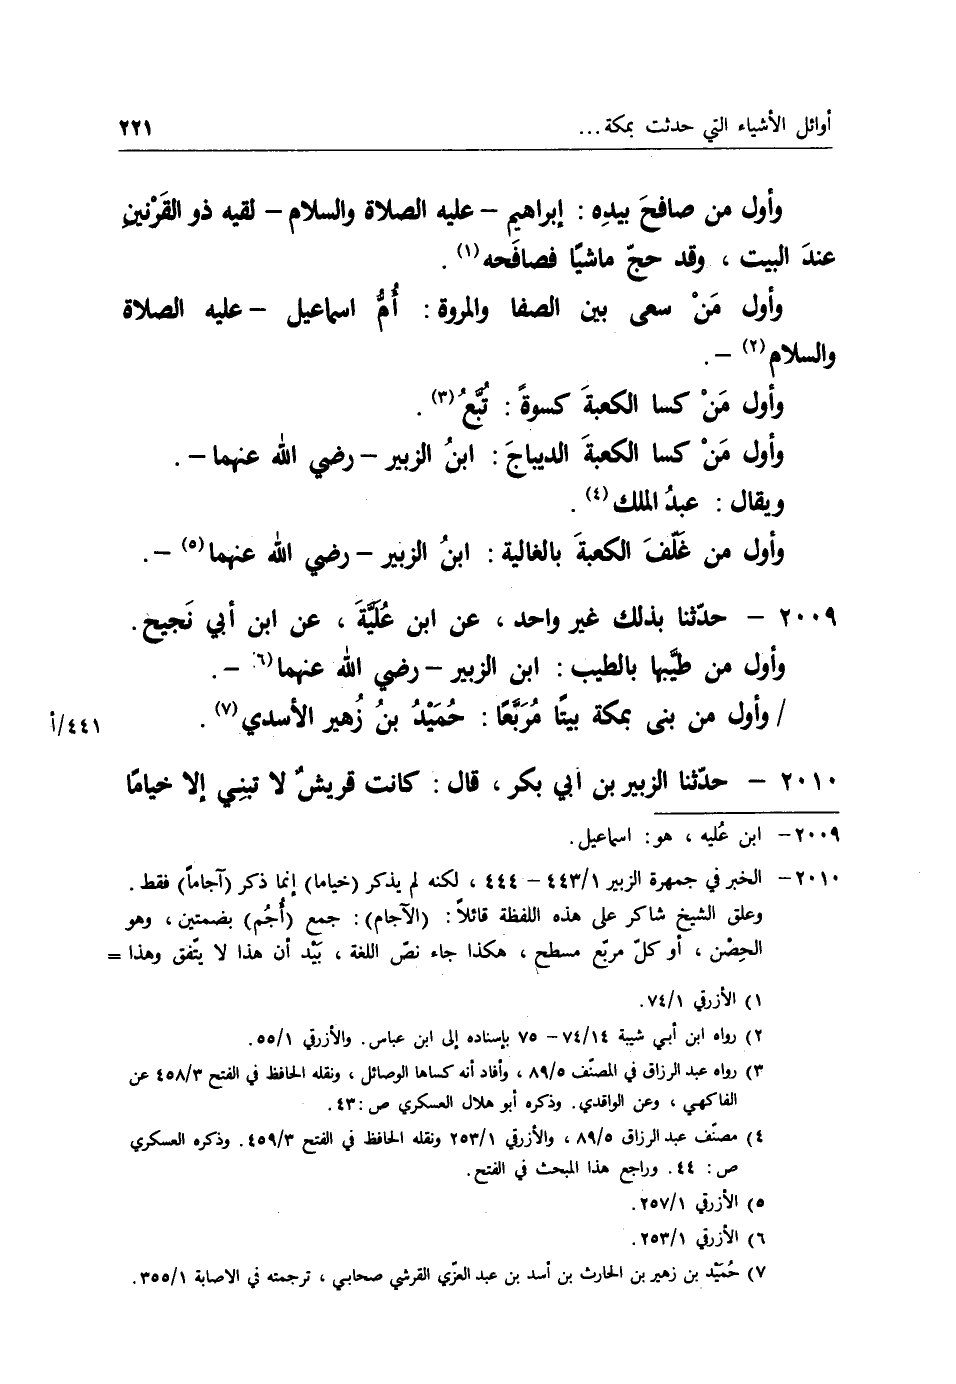 أوائل الأشياء التي حدثت بمكة ... ٢٢١
وأول من صافحَ بيدِه : إبراهيم – عليه الصلاة والسلام – لقيه ذو القَرْنينِ
عندَ البيت ، وقد حجّ ماشيًا فصافَحه(١) .
وأول مَنْ سعى بين الصفا والمروة : أُمُّ اسماعيل – عليه الصلاة
والسلام(٢) – .
وأول مَنْ كسا الكعبةَ كسوةً : تُبَّعُ(٣) .
وأول مَنْ كسا الكعبةَ الديباجَ : ابنُ الزبير – رضي الله عنهما – .
ويقال : عبدُ الملك(٤) .
وأول من غَلّفَ الكعبةَ بالغالية : ابنُ الزبير – رضي الله عنهما(٥) – .
٢٠٠٩ – حدّثنا بذلك غير واحد ، عن ابن عُلَيَّةَ ، عن ابن أبي نَجيح .
وأول من طيَّبها بالطيب : ابن الزبير – رضي الله عنهما(٦) – .
/ وأول من بنى بمكة بيتًا مُرَبَّعًا : حُمَيْدُ بنُ زُهير الأسدي(٧) . ٤٤١/أ
٢٠١٠ – حدّثنا الزبير بن أبي بكر ، قال : كانت قريشٌ لا تبنِي إلا خيامًا
٢٠٠٩– ابن عُليه ، هو : اسماعيل .
٢٠١٠– الخبر في جمهرة الزبير ٤٤٣/١ – ٤٤٤ ، لكنه لم يذكر (خياما) إنما ذكر (آجاماً) فقط .
وعلق الشيخ شاكر على هذه اللفظة قائلاً : (الآجام) : جمع (أُجُم) بضمتين ، وهو
الحِصْن ، أو كلّ مربّع مسطح ، هكذا جاء نصّ اللغة ، بَيْد أن هذا لا يتّفق وهذا =
١) الأزرقي ٧٤/١ .
٢) رواه ابن أبي شيبة ٧٤/١٤ – ٧٥ بإسناده إلى ابن عباس . والأزرقي ٥٥/١ .
٣) رواه عبد الرزاق في المصنّف ٨٩/٥ ، وأفاد أنه كساها الوصائل ، ونقله الحافظ في الفتح ٤٥٨/٣ عن
الفاكهي ، وعن الواقدي . وذكره أبو هلال العسكري ص : ٤٣ .
٤) مصنّف عبد الرزاق ٨٩/٥ ، والأزرقي ٢٥٣/١ ونقله الحافظ في الفتح ٤٥٩/٣ . وذكره العسكري
ص : ٤٤ . وراجع هذا المبحث في الفتح .
٥) الأزرقي ٢٥٧/١ .
٦) الأزرقي ٢٥٣/١ .
٧) حُمَيْد بن زهير بن الحارث بن أسد بن عبد العزّي القرشي صحابي ، ترجمته في الاصابة ٣٥٥/١ .